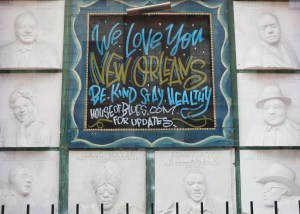 We Love You
NEW ORLEANS
BE KIND STAY HEALTHY
HOUSEOFBLUES.COM
FOR UPDATES.